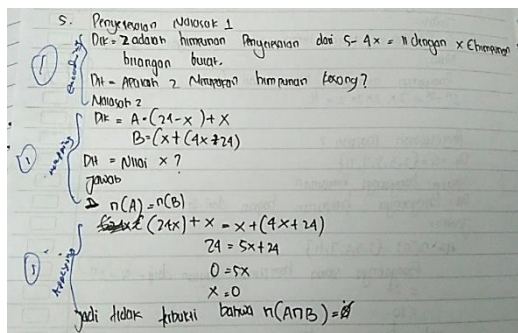 5. Penyelesaian Masalah 1
Dik = Z adalah himpunan Penyelesaian dari 5 - 4x = 11 dengan x E himpunan
bilangan bulat.
Dit = Apakah Z Merupakan himpunan kosong?
Masalah 2
Dik = A = (24-x) + x
B = (x + (4x+24)
Dit = Nilai x ?
Jawab
n(A) = n(B)
(24x) + x = x + (4x + 24)
24 = 5x + 24
0 = 5x
x = 0
Jadi tidak terbukti bahwa n(A∩B) = Ø